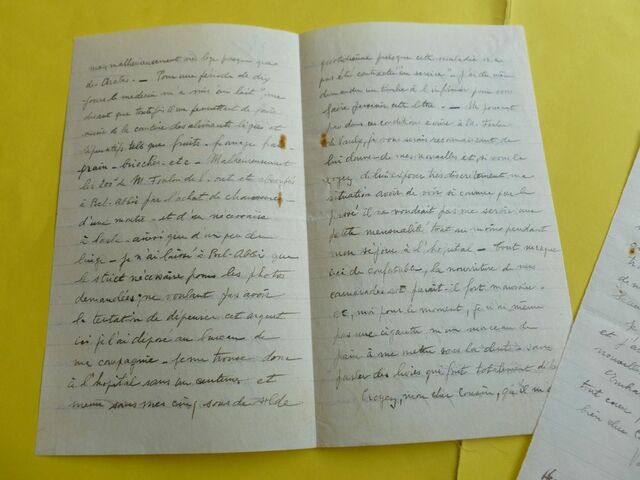 mais malheureusement ne lège presque que
des Arabes. — Pour une période de dix
jours le médecin m'a mis "au lait" me
disant que toutefois il me permettait de faire
venir de la cantine des aliments légers et
dépuratifs tels que fruits - fromage pas
pain - brioches - etc - Malheureusement
les 20f de M. Foulon de V. ont été absorbés
à Bel-Abbès par l'achat de chaussures
d'une montre - et d'un nécessaire
à barbe - ainsi que d'un peu de
linge - je n'ai laissé à Bel-Abbès que
le strict nécessaire pour les photos
demandées; ne voulant pas avoir
la tentation de dépenser cet argent
ici je l'ai déposé au bureau de
ma compagnie - je me trouve donc
à l'hôpital sans un centime et
même sans mes cinq sous de solde
quotidienne puisque cette maladie n'a
pas été contractée "en service" - j'ai dû même
demander un timbre à l'infirmier pour vous
faire parvenir cette lettre. - Ne pouvant
pas dans ces conditions écrire à M. Foulon
de Vaulx, je vous serais reconnaissant de
lui donner de mes nouvelles et, si vous le
voyez de lui exposer très discrètement ma
situation afin de voir si comme par le
passé il ne voudrait pas me servir une
petite mensualité tout au moins pendant
mon séjour à l'hôpital - tout manque
ici de confortable, la nourriture de mes
camarades est paraît il fort mauvaise
et, moi pour le moment, je n'ai même
pas une cigarette ni un morceau de
pain à me mettre sous la dent - sans
parler des livres qui font totalement dé
Croyez, mon cher Cousin, qu'il m'e
et j'a
nouvelle
tout coeur
bien chers